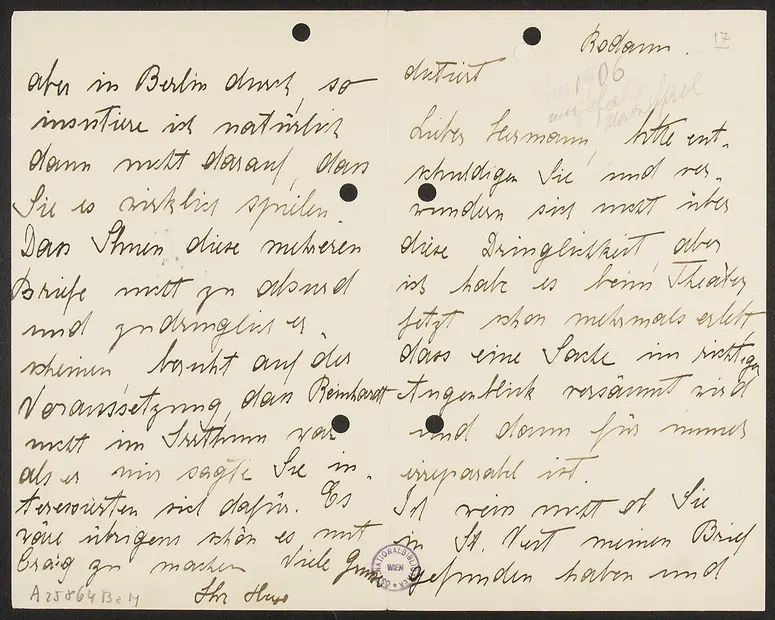 Rodaun.
17
dictiert
1906
Lieber Hermann, bitte ent-
schuldigen Sie und ver-
wundern sich nicht über
diese Dringlichkeit, aber
ich habe es beim Theater
jetzt schon mehrmals erlebt,
dass eine Sache im richtigen
Augenblick versäumt wird
und dann für immer
irreparabel ist.
Ich weiss nicht ob Sie
in St. Veit meinen Brief
gefunden haben und
aber in Berlin durch, so
insistiere ich natürlich
dann nicht darauf, dass
Sie es wirklich spielen.
Dass Ihnen diese mehreren
Briefe nicht zu absurd
und zudringlich er-
scheinen beruht auf der
Voraussetzung, dass Reinhardt
nicht im Irrthum war
als er mir sagte Sie in-
teressierten sich dafür. Es
wäre übrigens schön es mit
Craig zu machen. Viele Grüsse
Ihr Hugo
NATIONALBIBLIOTHEK
WIEN
A 25864 BaM